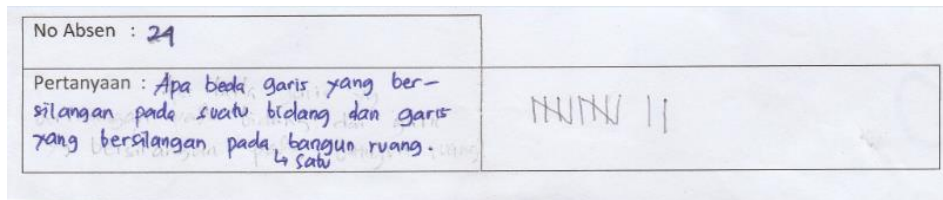 No Absen : 24
Pertanyaan : Apa beda garis yang ber-
silangan pada suatu bidang dan garis
yang bersilangan pada bangun ruang.
↳ satu